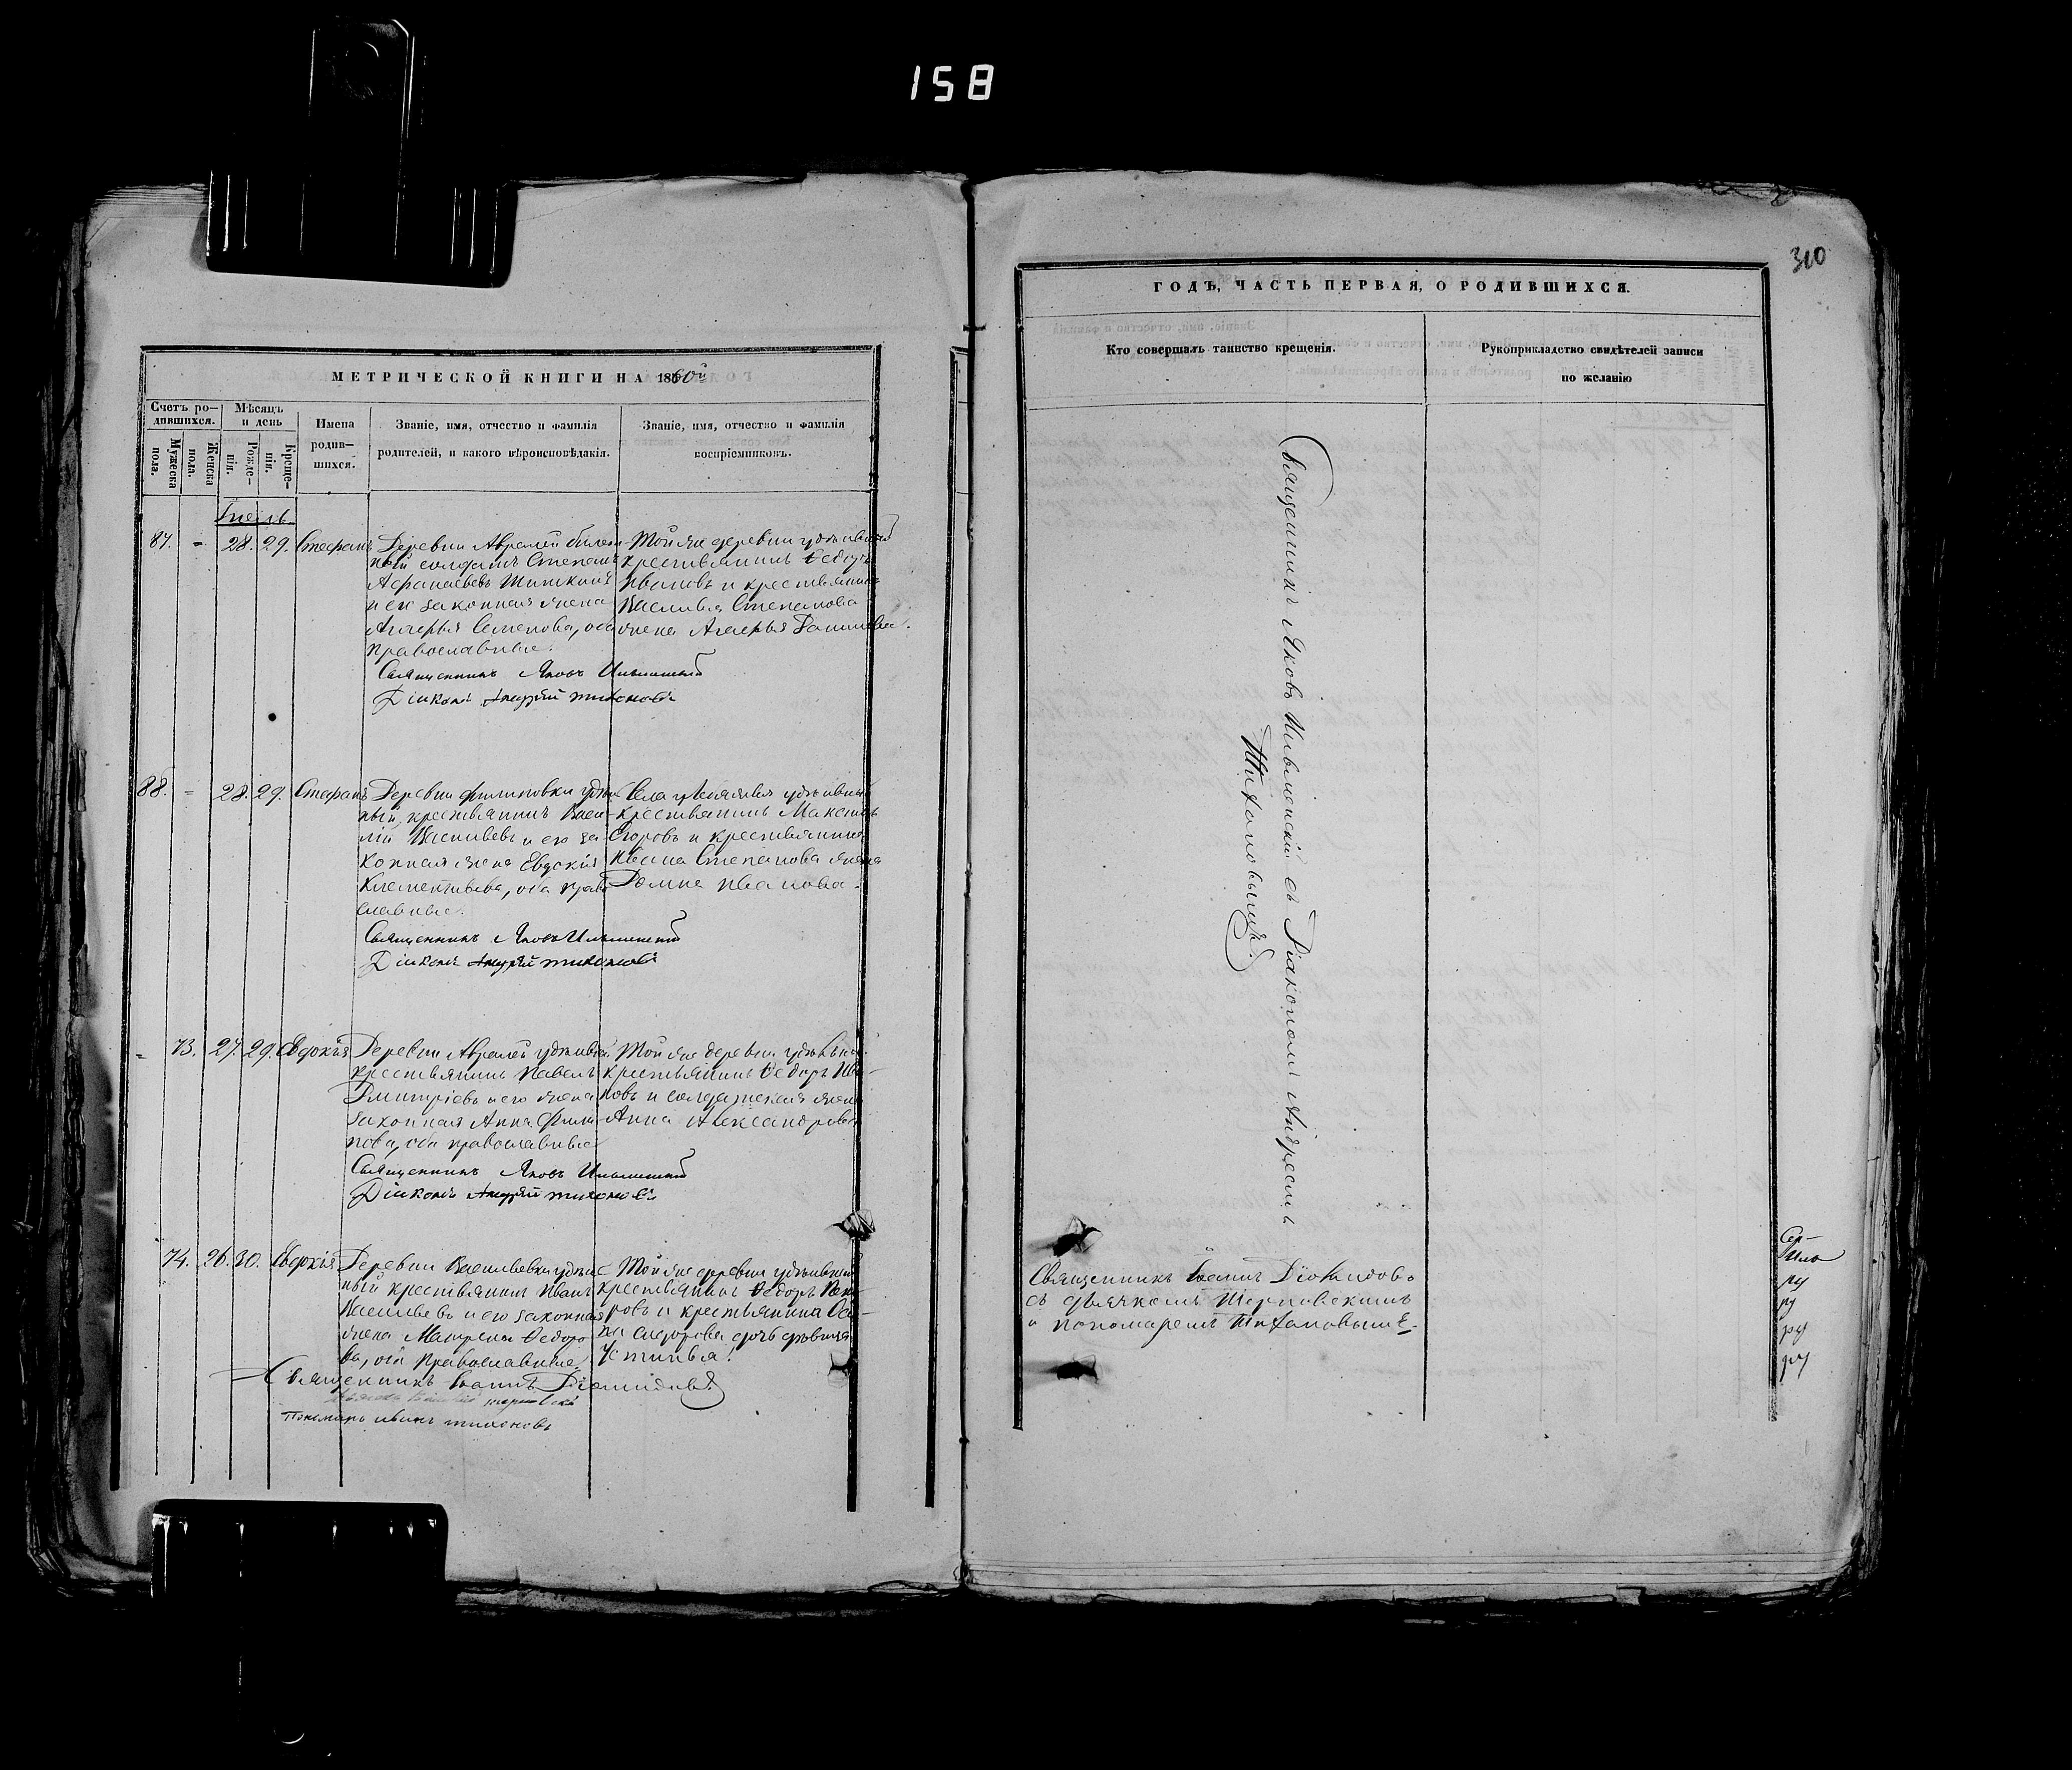 158
310
МЕТРИЧЕСКОЙ КНИГИ НА 1860й
Счетъ ро-
дившихся.
Мужеска
пола.
Женска
пола.
Мѣсяцъ
и день
Рожде-
нія.
Креще-
нія.
Имена
родив-
шихся.
Званіе, имя, отчество и фамилія
родителей, и какого вѣроисповѣданія.
Званіе, имя, отчество и фамилія
воспріемниковъ.
87. - 28. 29. Стефанъ
Деревни Авралей
ный солдатъ Степанъ
Афанасьевъ Шишкинъ
и его законная жена
Семенова, оба
православные.
Той же деревни удѣльный
крестьянинъ Ѳедоръ
Ивановъ и крестьянина
Василья Степанова
жена
Священникъ Яковъ
Діаконъ Андрей Тихоновъ
88. - 28. 29. Стефанъ
Деревни Филиповки удѣль-
ный крестьянинъ Васи-
лій Васильевъ и его за-
конная жена Евдокія
Климентьева, оба право-
славные.
Села удѣльный
крестьянинъ Максимъ
Егоровъ и крестьянина
Ивана Степанова жена
Домна Иванова.
Священникъ Яковъ
Діаконъ Андрей Тихоновъ
- 73. 27. 29. Евдокія
Деревни Авралей удѣльный
крестьянинъ Павелъ
Дмитріевъ и его жена
законная Анна Филип-
пова, оба православные
Той же деревни удѣльный
крестьянинъ Ѳедоръ Ива-
новъ и солдатская жена
Анна Александрова
Священникъ Яковъ
Діаконъ Андрей Тихоновъ
74. 26. 30. Евдокія
Деревни Васильевки удѣль-
ный крестьянинъ Иванъ
Васильевъ и его законная
жена Матрена Ѳедоро-
ва, оба православные
Той же деревни удѣльный
крестьянинъ Ѳедоръ
ровъ и крестьянина Оси-
па Сидорова дочь дѣвица
Устинья.
Священникъ Іоаннъ Діомидовъ
Пономарь Иванъ Тихоновъ
ГОДЪ, ЧАСТЬ ПЕРВАЯ, О РОДИВШИХСЯ.
Кто совершалъ таинство крещенія.
Рукоприкладство свидѣтелей записи
по желанію
Священникъ Яковъ съ Діакономъ Андреемъ
Тихоновымъ.
Священникъ Іоаннъ Діомидовъ
съ дьячкомъ
и пономаремъ Тихоновымъ.